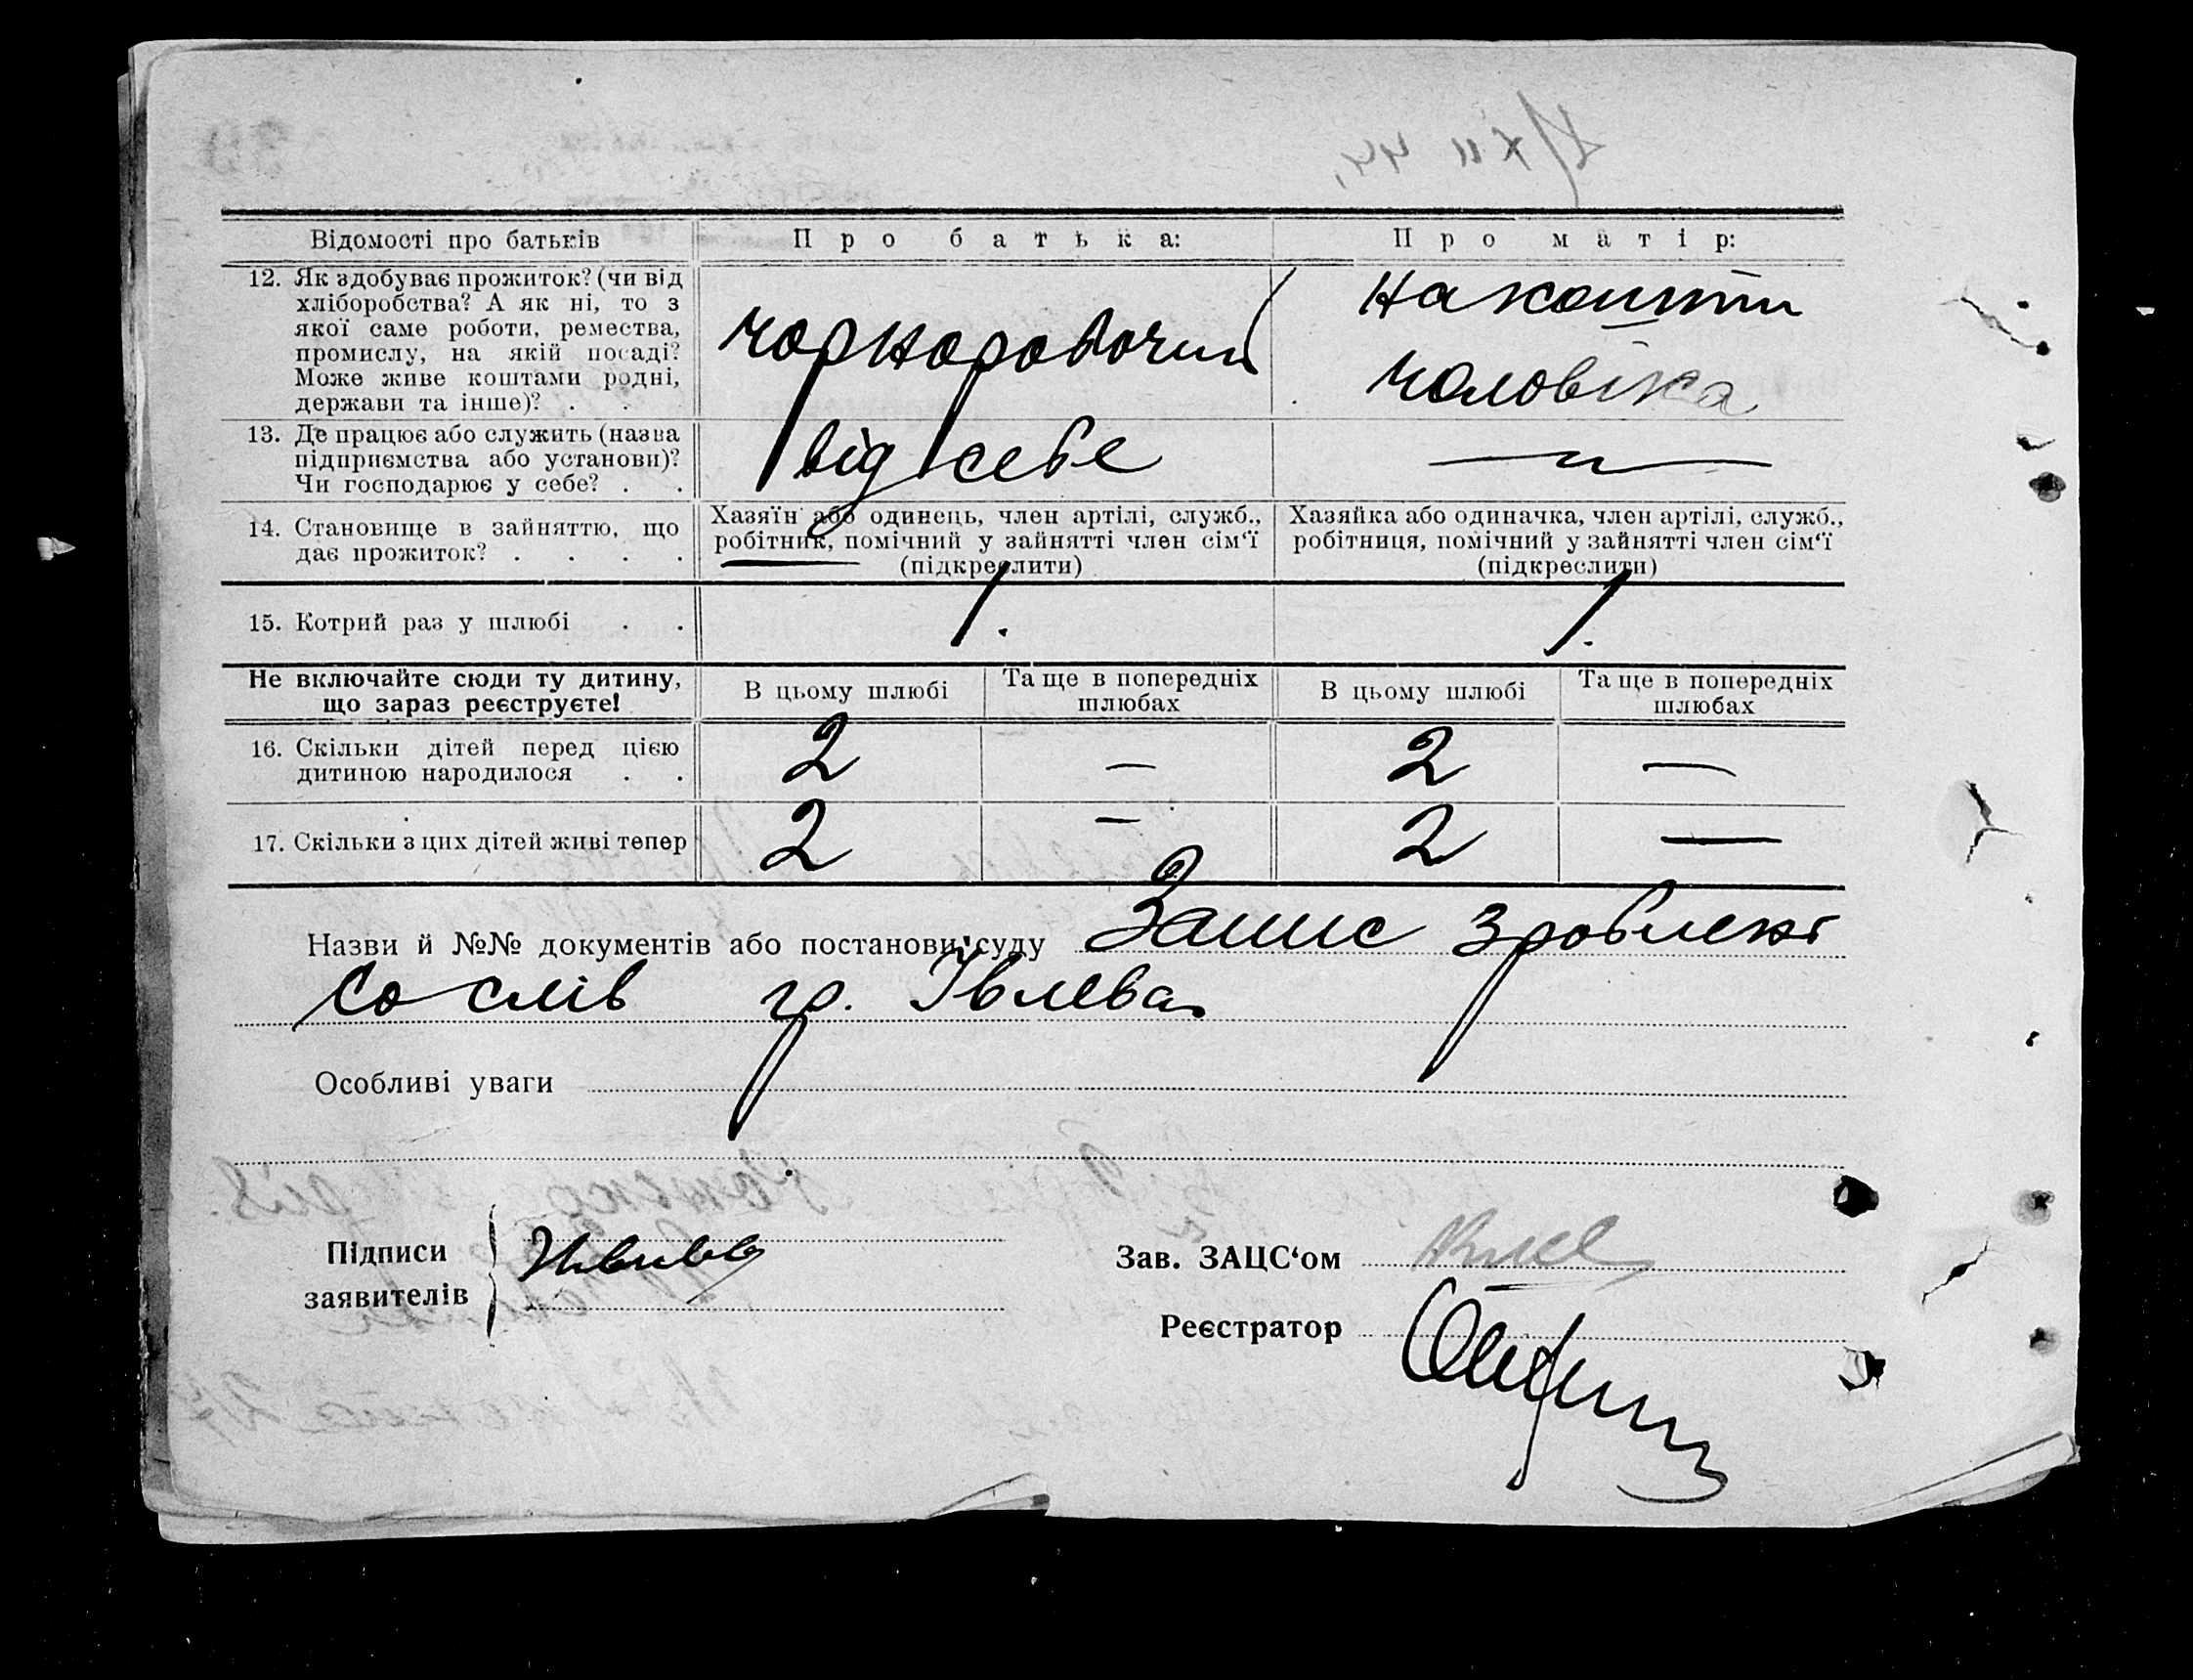 Відомості про батьків
Про батька:
Про матір:
12. Як здобуває прожиток? (чи від
хліборобства? А як ні, то з
якої саме роботи, ремества,
промислу, на якій посаді?
Може живе коштами родні,
держави та інше)? . .
чорноробочий
На кошти
чоловіка
13. Де працює або служить (назва
підприємства або установи)?
Чи господарює у себе? . .
від себе
— " —
14. Становище в зайняттю, що
дає прожиток? . . . .
Хазяїн або одинець, член артілі, служб.,
робітник, помічний у зайнятті член сім‘ї
(підкреслити)
Хазяйка або одиначка, член артілі, служб.,
робітниця, помічний у зайнятті член сім‘ї
(підкреслити)
15. Котрий раз у шлюбі . .
1.
1.
Не включайте сюди ту дитину,
що зараз реєструєте!
В цьому шлюбі
Та ще в попередніх
шлюбах
В цьому шлюбі
Та ще в попередніх
шлюбах
16. Скільки дітей перед цією
дитиною народилося . .
2 — 2 —
17. Скільки з цих дітей живі тепер
2 — 2 —
Назви й №№ документів або постанови суду Запис зроблено
со слів гр. Івлева
Особливі уваги
Підписи
заявителів
Зав. ЗАЦС‘ом
Реєстратор